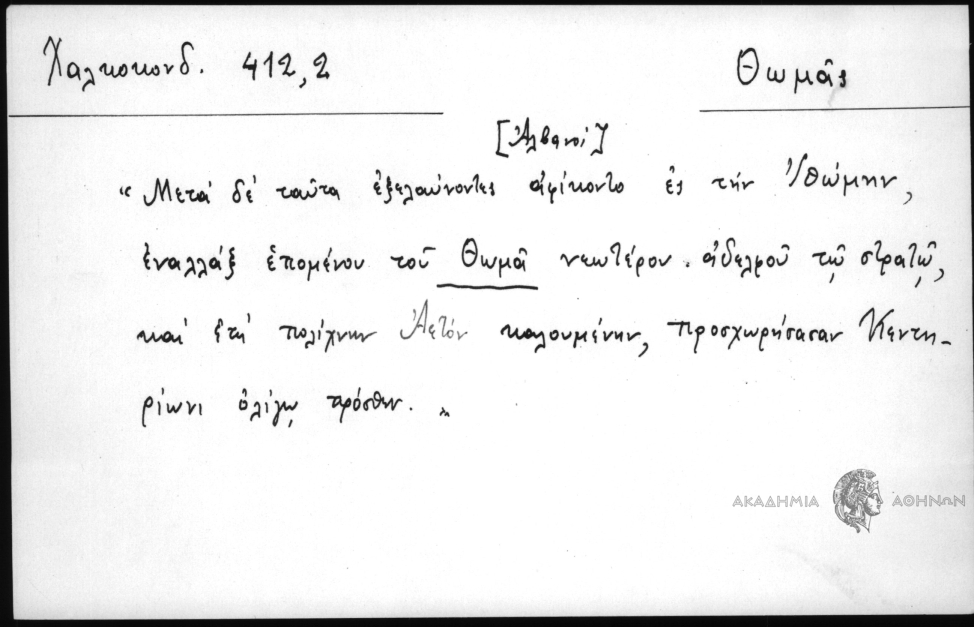 Χαλκοκονδ. 412,2 Θωμᾶς
[Ἀλβανοί]
“ Μετὰ δὲ ταῦτα ἐξελαύνοντες ἀφίκοντο ἐς τὴν Ἰθώμην,
ἐναλλὰξ ἑπομένου τοῦ Θωμᾶ νεωτέρου ἀδελφοῦ τῷ στρατῷ,
καὶ ἐπὶ πολίχνην Ἀετὸν καλουμένην, προσχωρήσασαν Κεντη-
ρίωνι ὀλίγῳ πρόσθεν. „
ΑΚΑΔΗΜΙΑ ΑΘΗΝΩΝ